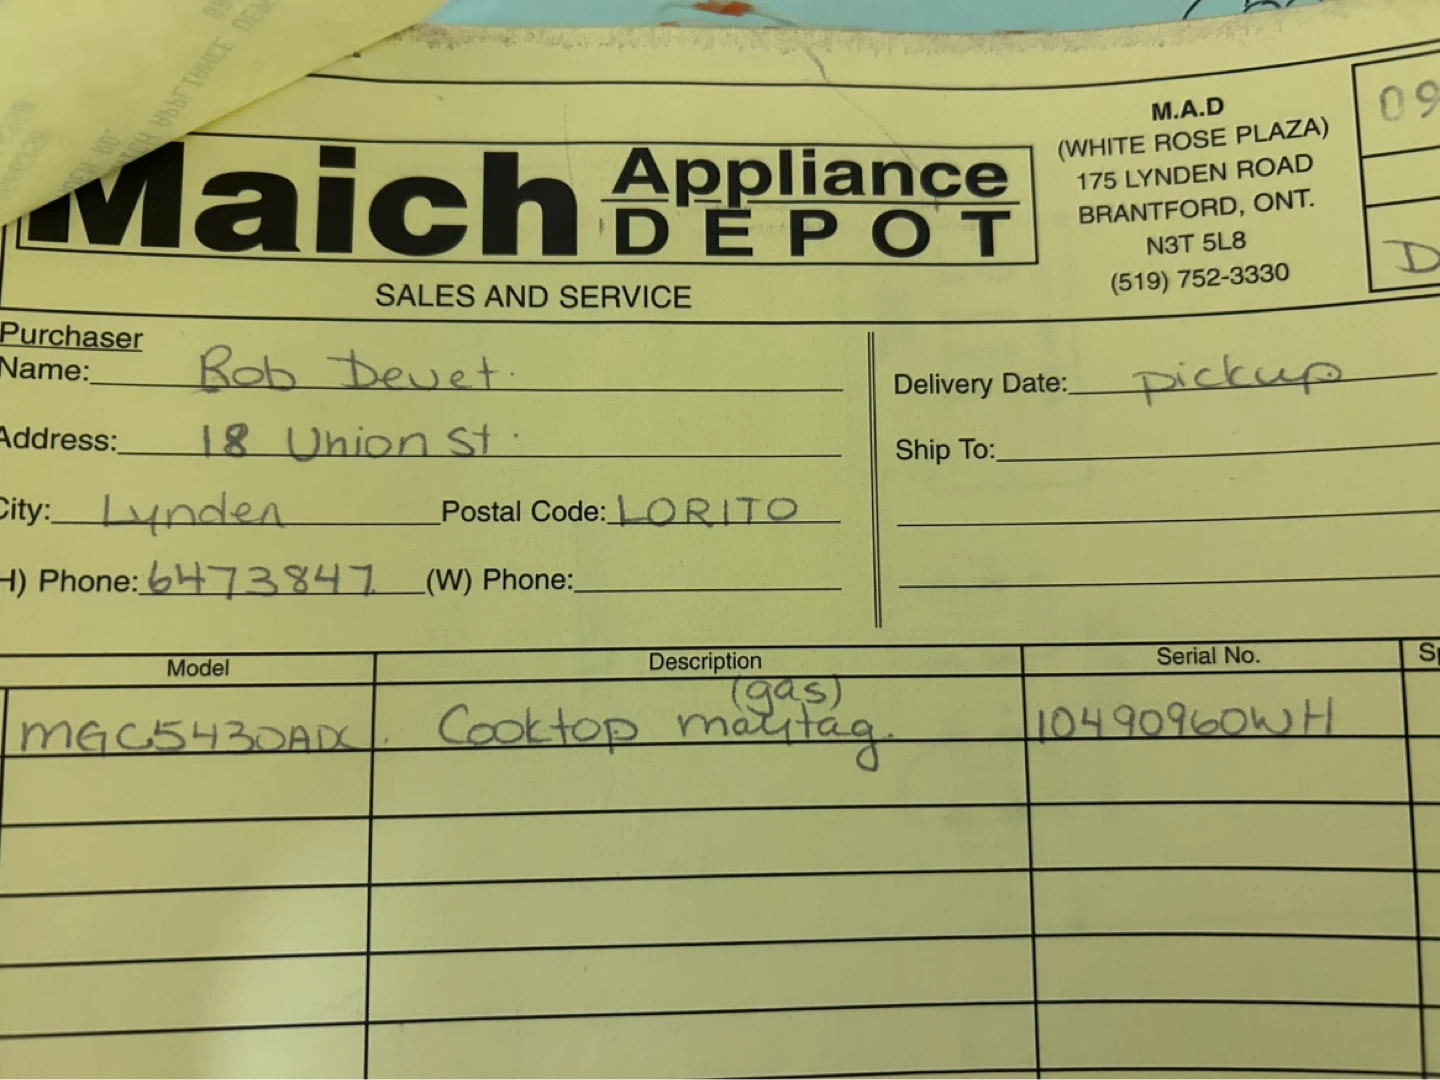 Maich Appliance DEPOT
SALES AND SERVICE
M.A.D
(WHITE ROSE PLAZA)
175 LYNDEN ROAD
BRANTFORD, ONT.
N3T 5L8
(519) 752-3330
09
D
Purchaser
Name: Bob Devet.
Address: 18 Union St.
City: Lynden Postal Code: LORITO
H) Phone: 6473847 (W) Phone:
Delivery Date: pickup
Ship To:
Model Description Serial No. Sp
MGC5430ADC. Cooktop (gas) maytag. 10490960WH